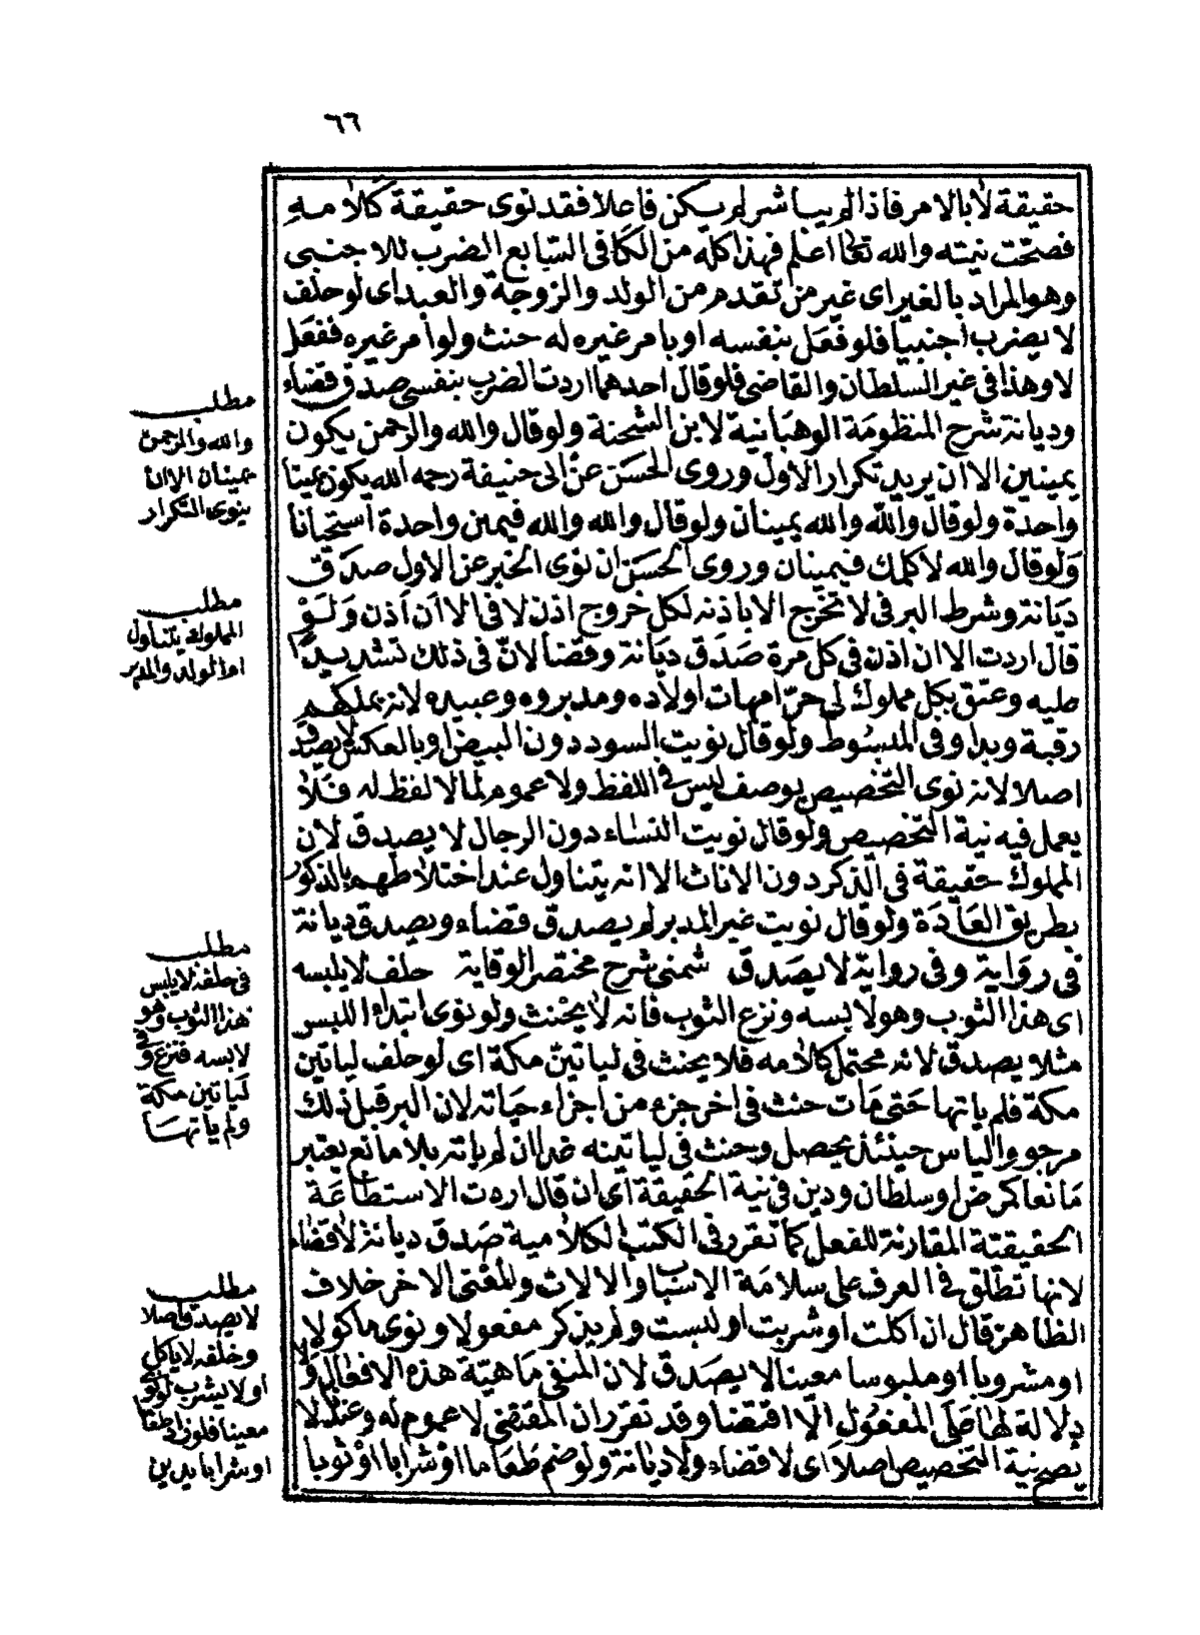 ٦٦
حقيقة لا بالامر فاذا لم يباشر لم يكن فاعلا فقد نوى حقيقة كلامه
فصحت نيته والله تعالى اعلم فهذا كله من الكافى السابع الضرب للاجنبى
وهو المراد بالغير اى غير من تقدم من الولد والزوجة والعبد اى لو حلف
لا يضرب اجنبيا فلو فعل بنفسه او بامر غيره له حنث ولو امر غيره ففعل
لا وهذا فى غير السلطان والقاضى فلو قال احدهما اردت الضرب بنفسى صدق قضاء
وديانة شرح المنظومة الوهبانية لابن الشحنة ولو قال والله والرحمن يكون
يمينين الا ان يريد تكرار الاول وروى الحسن عن ابى حنيفة رحمه الله يكون يمينا
واحدة ولو قال والله والله يمينان ولو قال والله والله فيمين واحدة استحبانا
ولو قال والله لا كلمك فيمينان وروى الحسن ان نوى الخبر عن الاول صدق
ديانة وشرط البر فى لا تخرج الا باذنه لكل خروج اذن لا فى الا ان اذن ولو
قال اردت الا ان اذن فى كل مرة صدق ديانة وقضا لان فى ذلك تشديدا
عليه وعتق بكل مملوك لى حر امهات اولاده ومدبروه وعبيده لانه يملكهم
رقبة ويدا وفى المبسوط ولو قال نويت السود دون البيض او بالعكس لا يصدق
اصلا لانه نوى التخصيص بوصف ليس فى اللفظ ولا عموم لما لا لفظ له فلا
يعمل فيه نية التخصيص ولو قال نويت النساء دون الرجال لا يصدق لان
المملوك حقيقة فى الذكر دون الاناث الا انه يتناول عند اختلاطهم بالذكور
بطريق العادة ولو قال نويت غير المدبر لم يصدق قضاء ويصدق ديانة
فى رواية وفى رواية لا يصدق شمنى شرح مختصر الوقاية حلف لا يلبسه
اى هذا الثوب وهو لابسه ونزع الثوب فانه لا يحنث ولو نوى ابتداء اللبس
مثلا يصدق لانه محتمل كلامه فلا يحنث فى لياتين مكة اى لو حلف لياتين
مكة فلم ياتها حتى مات حنث فى اخر جزء من اجزاء حياته لان البر قبل ذلك
مرجو والياس حينئذ يحصل وحنث فى لياتينه غدا ان لم ياته بلا مانع يعتبر
مانعا كمرض او سلطان ودين فى نية الحقيقة اى ان قال اردت الاستطاعة
الحقيقتة المقارنة للفعل كما تقرر فى الكتب الكلامية صدق ديانة لا قضاء
لانها تطلق فى العرف على سلامة الاسباب والالات والمعنى الاخر خلاف
الظاهر قال ان اكلت او شربت او لبست ولم يذكر مفعولا ونوى ماكولا
او مشروبا او ملبوسا معينا لا يصدق لان المنفى ماهية هذه الافعال ولا
دلالة لها على المفعول الا اقتضا وقد تقرر ان المقتضى لا عموم له وعندنا لا
يصح نية التخصيص اصلا اى لا قضاء ولا ديانة ولو ضم طعاما او شرابا او ثوبا
مطلب
والله والرحمن
يمينان الا ان
ينوى التكرار
مطلب
المملوك يتناول
ام الولد والمدبر
مطلب
فى حلفه لا يلبس
هذا الثوب وهو
لابسه فنزع وفى
لياتين مكة
ولم ياتها
مطلب
لا يصدق اصلا
وحلفه لا ياكل
او لا يشرب لو نوى
معينا فلو زاد طعاما
او شرابا يدين